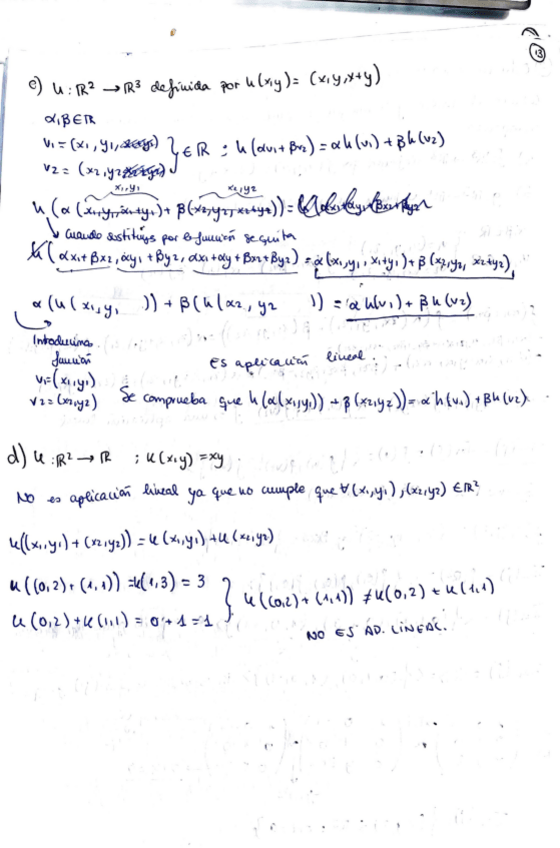 13
c) h : ℝ² → ℝ³ definida por h(x,y) = (x,y,x+y)
α,β ∈ ℝ
v1 = (x1, y1,
v2 = (x2, y2 } ∈ ℝ : h(αv1 + βv2) = αh(v1) + βh(v2)
x1,y1 x2,y2
h(α(x1,y1,x1+y1) + β(x2,y2,x2+y2)) =
↳ cuando sustituyes por la función se quita
h(αx1 + βx2, αy1 + βy2, αx1+αy+βx2+βy2) = α(x1,y1, x1+y1) + β(x2,y2, x2+y2)
α(h(x1,y1 )) + β(h(x2, y2 )) = αh(v1) + βh(v2)
↳ Introducimos
función
v1=(x1,y1)
v2=(x2,y2)
es aplicación lineal.
Se comprueba que h(α(x1,y1)) + β(x2,y2)) = αh(v1) + βh(v2).
d) k : ℝ² → ℝ ; k(x,y) = xy
NO es aplicación lineal ya que no cumple, que ∀(x1,y1),(x2,y2) ∈ ℝ²
k((x1,y1) + (x2,y2)) = k(x1,y1) + k(x2,y2)
k((0,2) + (1,1)) = k(1,3) = 3
k(0,2) + k(1,1) = 0 + 1 = 1 } k((0,2) + (1,1)) ≠ k(0,2) + k(1,1)
NO ES AP. LINEAL.